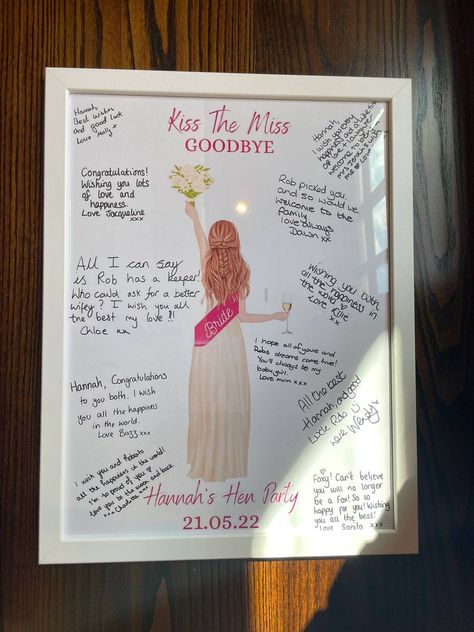 Kiss The Miss
GOODBYE
Hannah,
Best wishes
and good luck
Love Molly x
Hannah,
I wish you every
happiness and a lifetime
of love & laughter
welcome to
Congratulations!
Wishing you lots
of love and
happiness.
Love Jacqueline
xxx
Rob picked you,
and so would we
Welcome to the
family
love always
Dawn xx
All I can say
is Rob has a keeper!
Who could ask for a better
wifey? I wish you all
the best my love!!
Chloe xx
Bride
Wishing you both
all the happiness in
the world
Love Ellie
xx
I hope all of yours and
Robs dreams come true!
You'll always be my
baby girl.
Love mum xxx
Hannah, Congratulations
to you both. I wish
you all the happiness
in the world.
Love Bazz xxx
All the best
Hannah and good
Luck Rob
Love Wendy x
I wish you and
all the happiness in the world!
I'm so proud of you
love you to the moon and back
Charlotte xxx
Foxy! Can't believe
you will no longer
be a Fox! So so
happy for you! Wishing
you all the best!
Love Sarita xx
Hannah's Hen Party
21.05.22